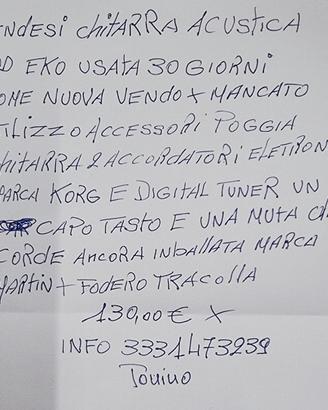 NDESI CHITARRA ACUSTICA
D EKO USATA 30 GIORNI
OME NUOVA VENDO X MANCATO
TILIZZO ACCESSORI POGGIA
HITARRA 2 ACCORDATORI ELETRON
ARCA KORG E DIGITAL TUNER UN
CAPO TASTO E UNA MUTA
CORDE ANCORA INBALLATA MARCA
MARTIN + FODERO TRACOLLA
130,00 € X
INFO 3331473239
Tonino